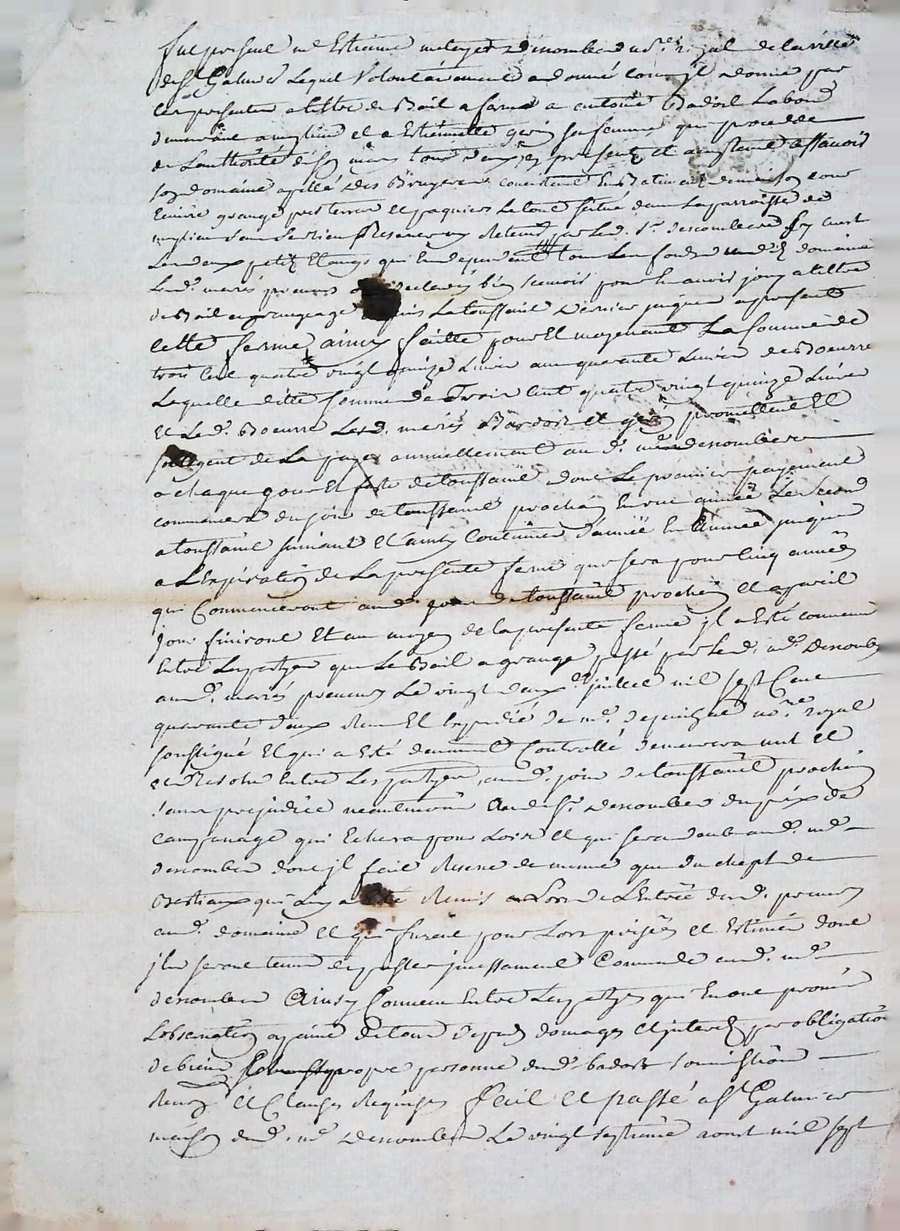 fut present me Estienne metayer denombre nore royal de la ville
de St Galmier Lequel Volontairement a donné comme jl donne par
Ces presentes a tittre de Bail a ferme a antoine Badoit Labour
demeurant a et a Estiennette sa femme qui procedde
de Lauthorité de son mary tous deux jcy presents et aceptant assavoir
son domaine apellé des Bruyeres consistant En Batiments de maison cour
Ecuire grange pres terres et paquiers Le tout situé dans La parroisse de
sans se rien Reserver ny Retenir par Led. Sr denombre sy c'est
Les deux petits Etangs qui En dependent tous Les fonds dud. domaine
Led. mariés preneurs declarés bien scavoir pour En avoir jouy a tittre
de Bail a grangeage depuis La toussaint derniere jusqua a present
Cette ferme ainsy faitte pour Et moyenant La somme de
trois Cent quatre vingt quinze Livres quarante Livres de Boeurre
Laquelle ditte somme de Trois Cent quatre vingt quinze Livres
Et Led. Boeurre Lesd. mariés Badoit Et promettent Et
sobligent de La payer annuellement aud. me denombre
a chaque jour Et feste de toussaint dont Le premier payement
commencera du jour de toussaint prochain En une année Le second
a toussaint suivant Et ainsy Continuer d'année En Année jusques
a L'Expiration de La presente ferme qui sera pour Cinq années
qui Commenceront aud. jour de toussaint prochain et a pareil
jour finiront Et au moyen de la presente ferme jl a Esté convenu
Entre Les partyes que Le Bail a grangeage passé par Led. me denombre
aud. mariés preneurs Le vingt deux juillet mil sept Cent
quarante deux Receu Et Expedié de me nore royal
soussigné Et qui a Esté duement Controllé demeurera nul et
Resolu Entre Les partyes, aud. jour de toussaint prochain
sans prejudice neantmoins Aud. Sr denombre du prix de
qui Echera pour Lors Et qui sera deub aud. me
denombre dont jl fait Reserve de meme que du cheptel de
Bestiaux qui Luy a Esté Remis Lors de L'Entrée dud. preneurs
aud. domaine Et qui furent pour Lors prisés et Estimés dont
jls seront tenus aud. me
denombre Ainsy Convenu Entre Les partyes qui En ont promis
L'observation a peine de tous depens domages Et jnterets par obligation
de biens propre personne dud. badoit soumissions
Renons et Clauses Requises Fait Et passé a St Galmier
maison dud. me denombre Le vingt septieme aoust mil sept